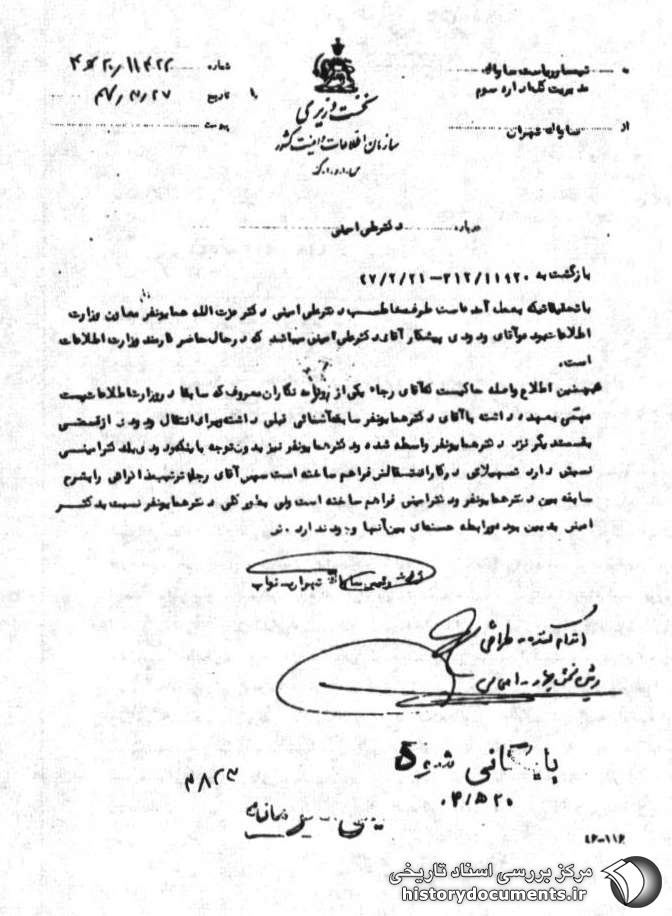 به تیمسار ریاست ساواک
مدیریت کل اداره سوم
از ساواک تهران
نخست وزیری
سازمان اطلاعات و امنیت کشور
س.ا.و.ا.ک
شماره
تاریخ
پیوست
درباره دکتر علی امینی
بازگشت به ۳۱۲/۱۱۹۲۰ - ۴۷/۲/۲۱
با تحقیقاتیکه بعمل آمده است طرف مخاطب دکتر علی امینی دکتر عزت الله همایونفر معاون وزارت
اطلاعات بوده و آقای ودودی پیشکار آقای دکتر علی امینی میباشد که در حال حاضر کارمند وزارت اطلاعات
است.
همچنین اطلاع واصله حاکیست که آقای رجاء یکی از روزنامه نگاران معروف که سابقا در وزارت اطلاعات پست
مهمی بعهده داشته با آقای دکتر همایونفر سابقه آشنائی قبلی داشته و برای انتقال ودودی از قسمتی
بقسمت دیگر نزد دکتر همایونفر واسطه شده و دکتر همایونفر نیز بدون توجه باینکه ودودی با دکتر امینی
نسبتی دارد تسهیلاتی در کار انتقالش فراهم ساخته است سپس آقای رجاء ترتیب مذاکراتی را بشرح
سابقه بین دکتر همایونفر و دکتر امینی فراهم ساخته است ولی بطور کلی دکتر همایونفر نسبت بدکتر
امینی بدبین بوده و رابطه حسنه‌ای بین آنها وجود ندارد.
تهران - نواب
اقدام کننده - طراحی
رئیس بخش چهار -
بایگانی شود
۴۸۲۳
۴۶-۱۱۶
مرکز بررسی اسناد تاریخی
historydocuments.ir